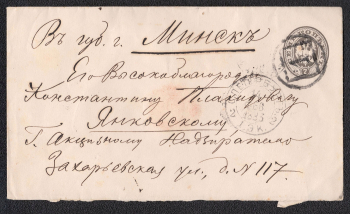 Въ губ. г. Минскъ
Его Высокоблагородію
Константину Плакидовичу
Янковскому
Г. Акцизному Надзирателю
Захарьевская ул., д. N 117.